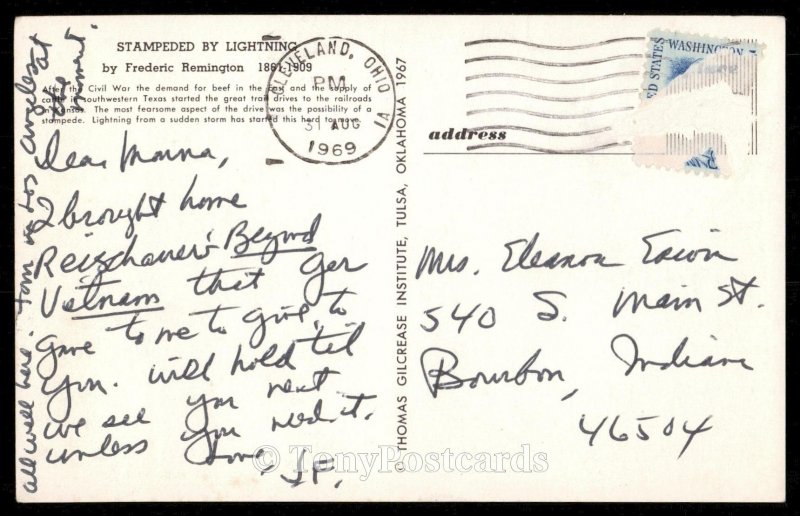 STAMPEDED BY LIGHTNING
by Frederic Remington 1861-1909
After the Civil War the demand for beef in the East and the supply of
cattle in southwestern Texas started the great trail drives to the railroads
in Kansas. The most fearsome aspect of the drive was the possibility of a
stampede. Lightning from a sudden storm has started this herd to move.
Dear Mama,
I brought home
Reischauer's Beyond
Vietnam that Ger
gave to me to give to
you. Will hold til
we see you next
unless you need it.
Love, JF.
all well here. Tom in Los Angeles at
the moment.
© THOMAS GILCREASE INSTITUTE, TULSA, OKLAHOMA 1967
CLEVELAND, OHIO
PM
31 AUG
1969
1A
ED STATES WASHINGTON
address
Mrs. Eleanor Erwin
540 S. Main St.
Bourbon, Indiana
46504
© TonyPostcards